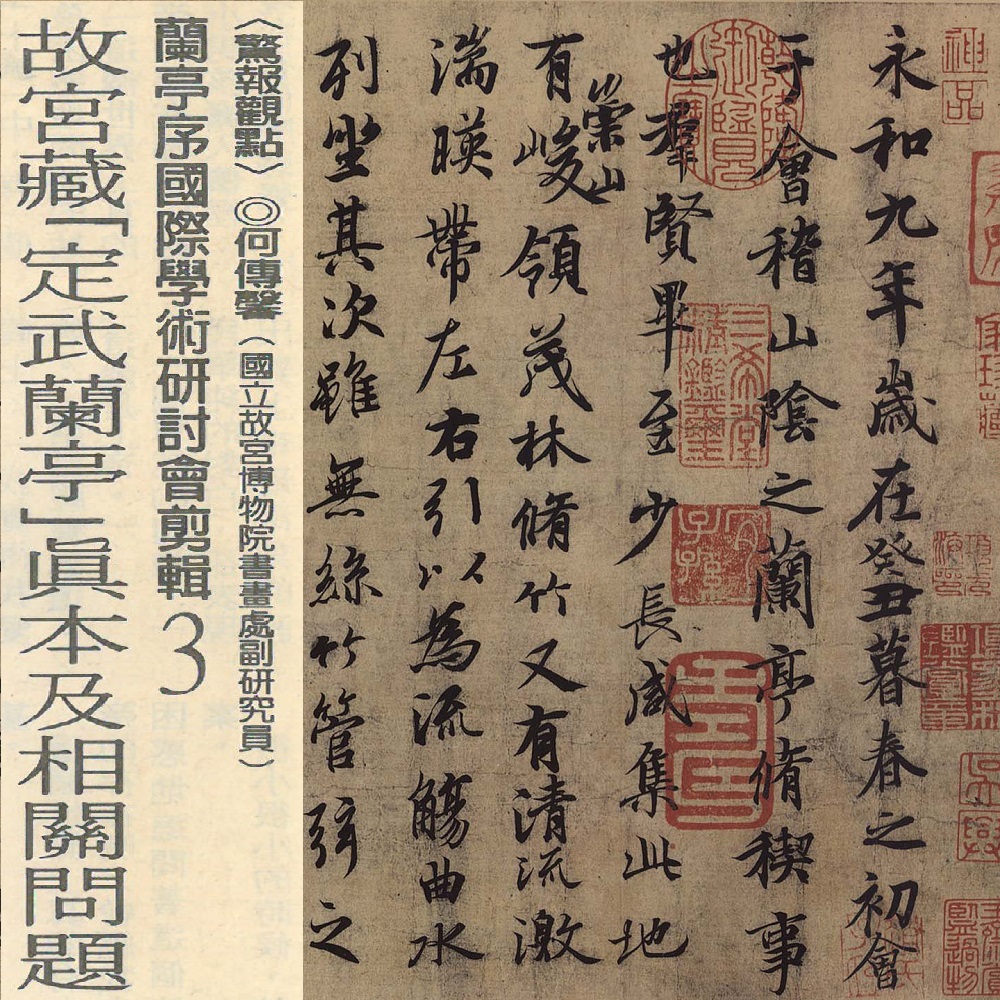 神品
永和九年歲在癸丑暮春之初會
于會稽山陰之蘭亭脩稧事
也羣賢畢至少長咸集此地
有崇山峻領茂林脩竹又有清流激
湍暎帶左右引以為流觴曲水
列坐其次雖無絲竹管弦之
三希堂精鑑璽
宜子孫
〈驚報觀點〉◎何傳馨（國立故宮博物院書畫處副研究員）
蘭亭序國際學術研討會剪輯3
故宮藏「定武蘭亭」眞本及相關問題